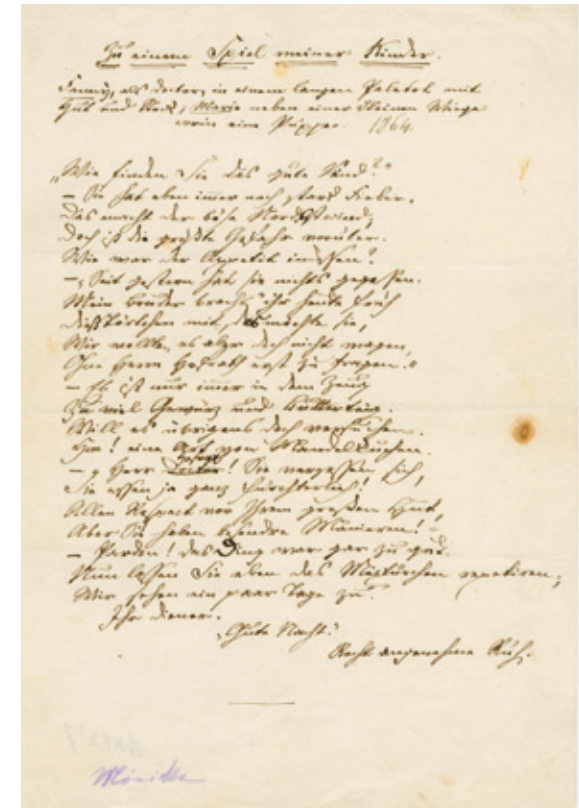 Zu einem Spiel meiner Kinder.
Fanny, als Doctor, in einem langen Paletot mit
Hut und Stock; Marie neben einer kleinen Wiege
worin eine Puppe. 1864.
„Wie finden Sie das gute Kind?"
– Sie hat eben immer noch stark Fieber.
Das macht der böse Nordostwind;
Doch ist die größte Gefahr vorüber.
Wie war der Appetit indessen?
– „Seit gestern hat sie nichts gegessen.
Mein Bruder bracht' ihr heute früh
Dieß Törtchen mit, das möchte sie,
Wir wollten es aber doch nicht wagen,
Ohne Herrn Hofrath erst zu fragen."
– Es ist nur immer in dem Zeug
Zu viel Gewürz und Butterteig.
Will es übrigens doch versuchen.
Hm! eine Art von Mandelkuchen.
– „Herr Hofrath! Sie vergessen sich,
Sie essen ja ganz fürchterlich!
Allen Respect vor Ihrem großen Hut,
Aber Sie haben besondre Manieren!"
– Pardon! das Ding war gar zu gut.
Nun lassen Sie eben das Mixtürchen repetiren;
Wir sehen ein paar Tage zu.
Ihr Diener.
„Gute Nacht!"
Recht angenehme Ruh.
Mörike